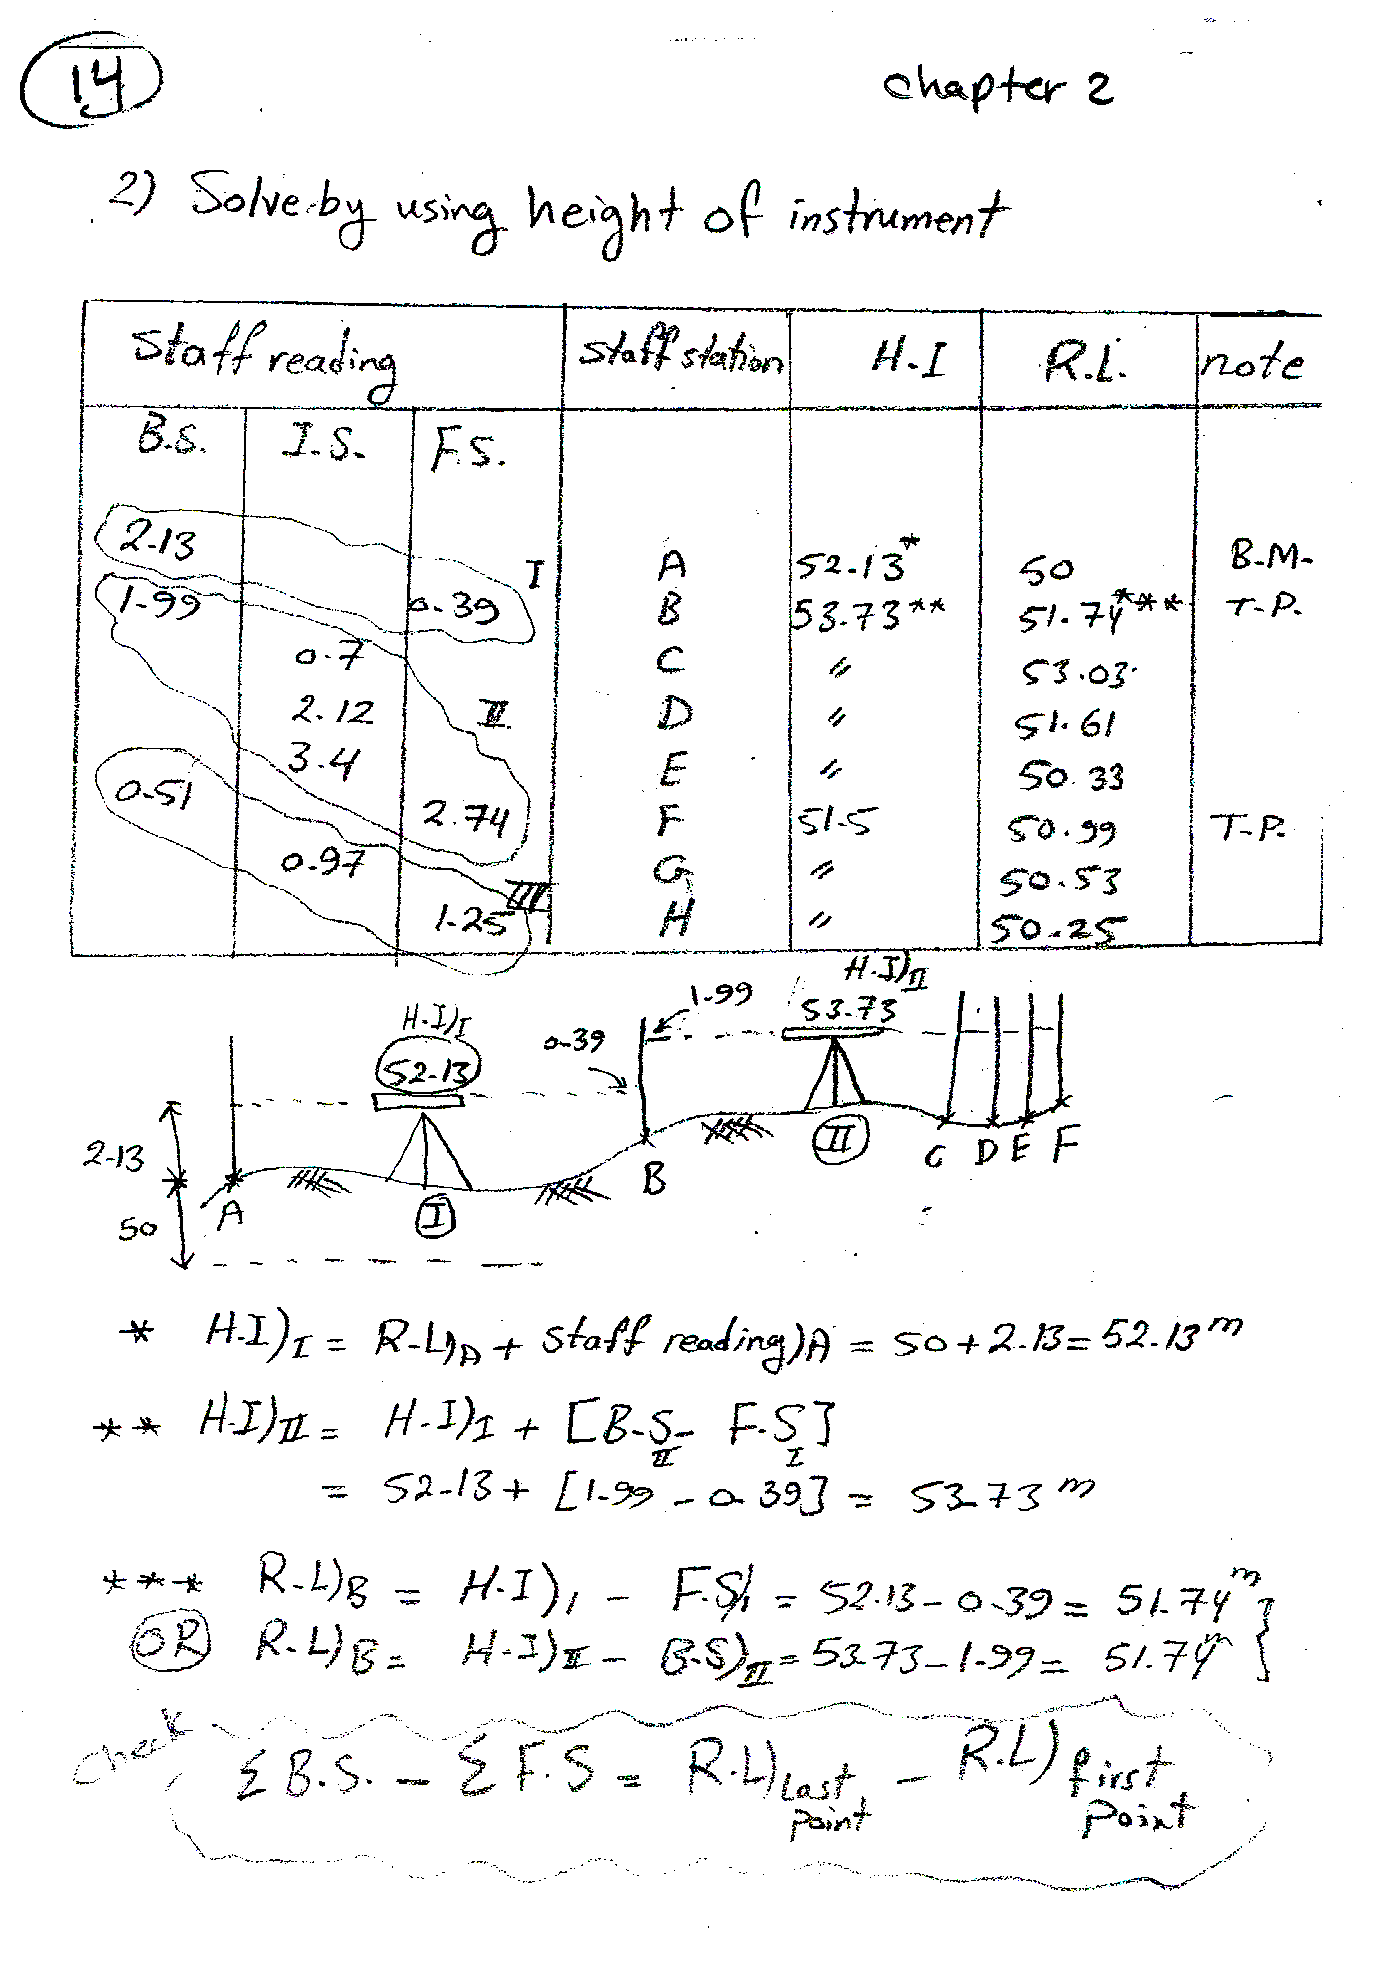 14
chapter 2
2) Solve by using height of instrument
Staff reading staff station H.I R.L. note
B.S. I.S. F.S.
2.13 I A 52.13* 50 B.M.
1.99 0.39 B 53.73** 51.74*** T.P.
0.7 C " 53.03
2.12 II D " 51.61
3.4 E " 50.33
0.51 2.74 F 51.5 50.99 T.P.
0.97 G " 50.53
III
1.25 H " 50.25
H.I)II
1.99 53.73
H.I)I
0.39
52.13
2.13
50
A I B II C D E F
* H.I)I = R.L)A + Staff reading)A = 50 + 2.13 = 52.13 m
** H.I)II = H.I)I + [B.S II - F.S I]
= 52.13 + [1.99 - 0.39] = 53.73 m
*** R.L)B = H.I)1 - F.S)1 = 52.13 - 0.39 = 51.74 m
OR R.L)B = H.I)II - B.S)II = 53.73 - 1.99 = 51.74 m
check
Σ B.S. - Σ F.S = R.L) Last point - R.L) first point